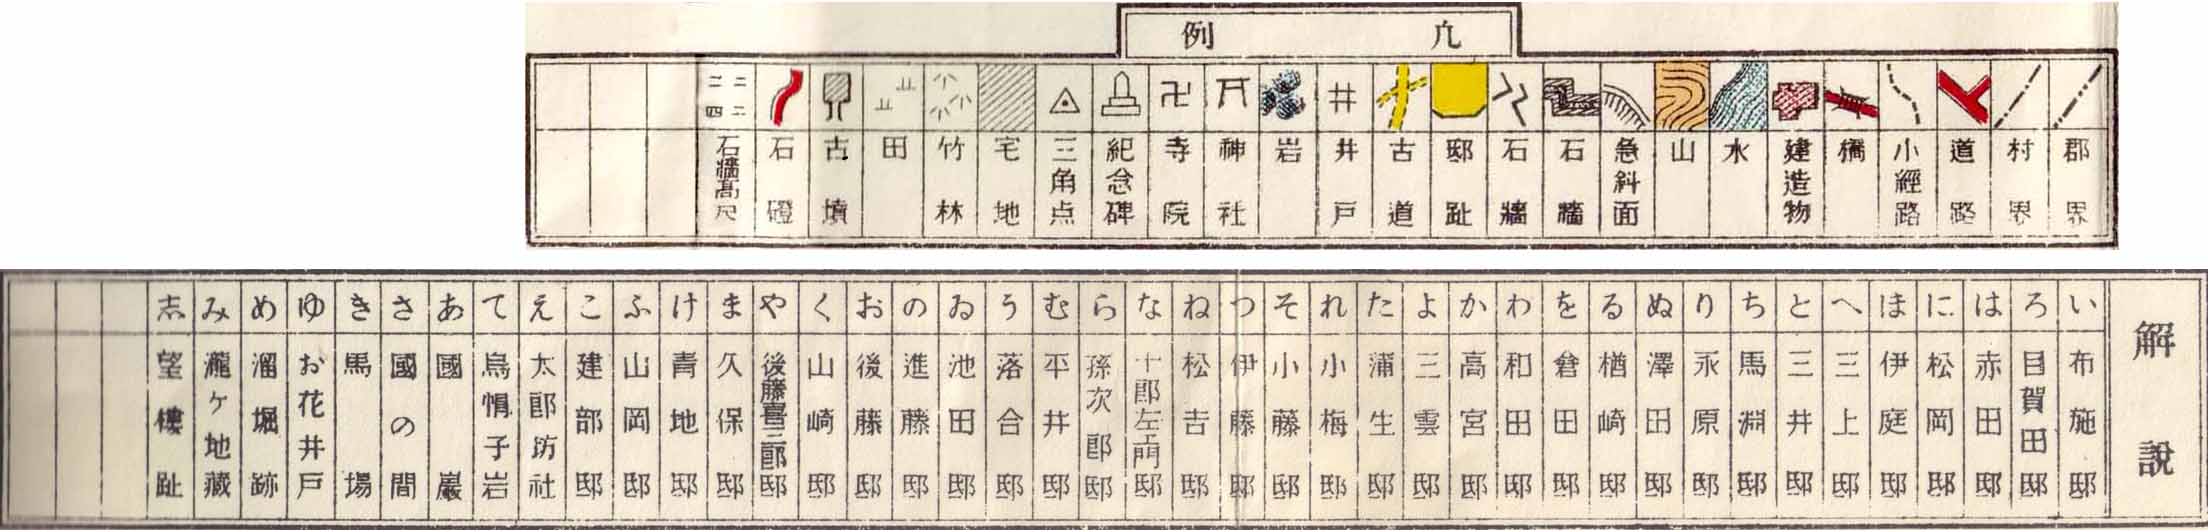 凢例
郡界
村界
道路
小經路
橋
建造物
水
山
急斜面
石牆
石牆
邸趾
古道
井戸
岩
神社
寺院
紀念碑
三角点
宅地
竹林
田
古墳
石磴
二二二四
石牆高尺
解説
い 布施邸
ろ 目賀田邸
は 赤田邸
に 松岡邸
ほ 伊庭邸
へ 三上邸
と 三井邸
ち 馬淵邸
り 永原邸
ぬ 澤田邸
る 楢崎邸
を 倉田邸
わ 和田邸
か 高宮邸
よ 三雲邸
た 蒲生邸
れ 小梅邸
そ 小藤邸
つ 伊藤邸
ね 松吉邸
な 十郎左エ門邸
ら 孫次郎邸
む 平井邸
う 落合邸
ゐ 池田邸
の 進藤邸
お 後藤邸
く 山崎邸
や 後藤喜三郎邸
ま 久保邸
け 青地邸
ふ 山岡邸
こ 建部邸
え 太郎坊社
て 烏帽子岩
あ 國巌
さ 國の間
き 馬場
ゆ お花井戸
め 溜堀跡
み 瀧ヶ地藏
志 望樓趾